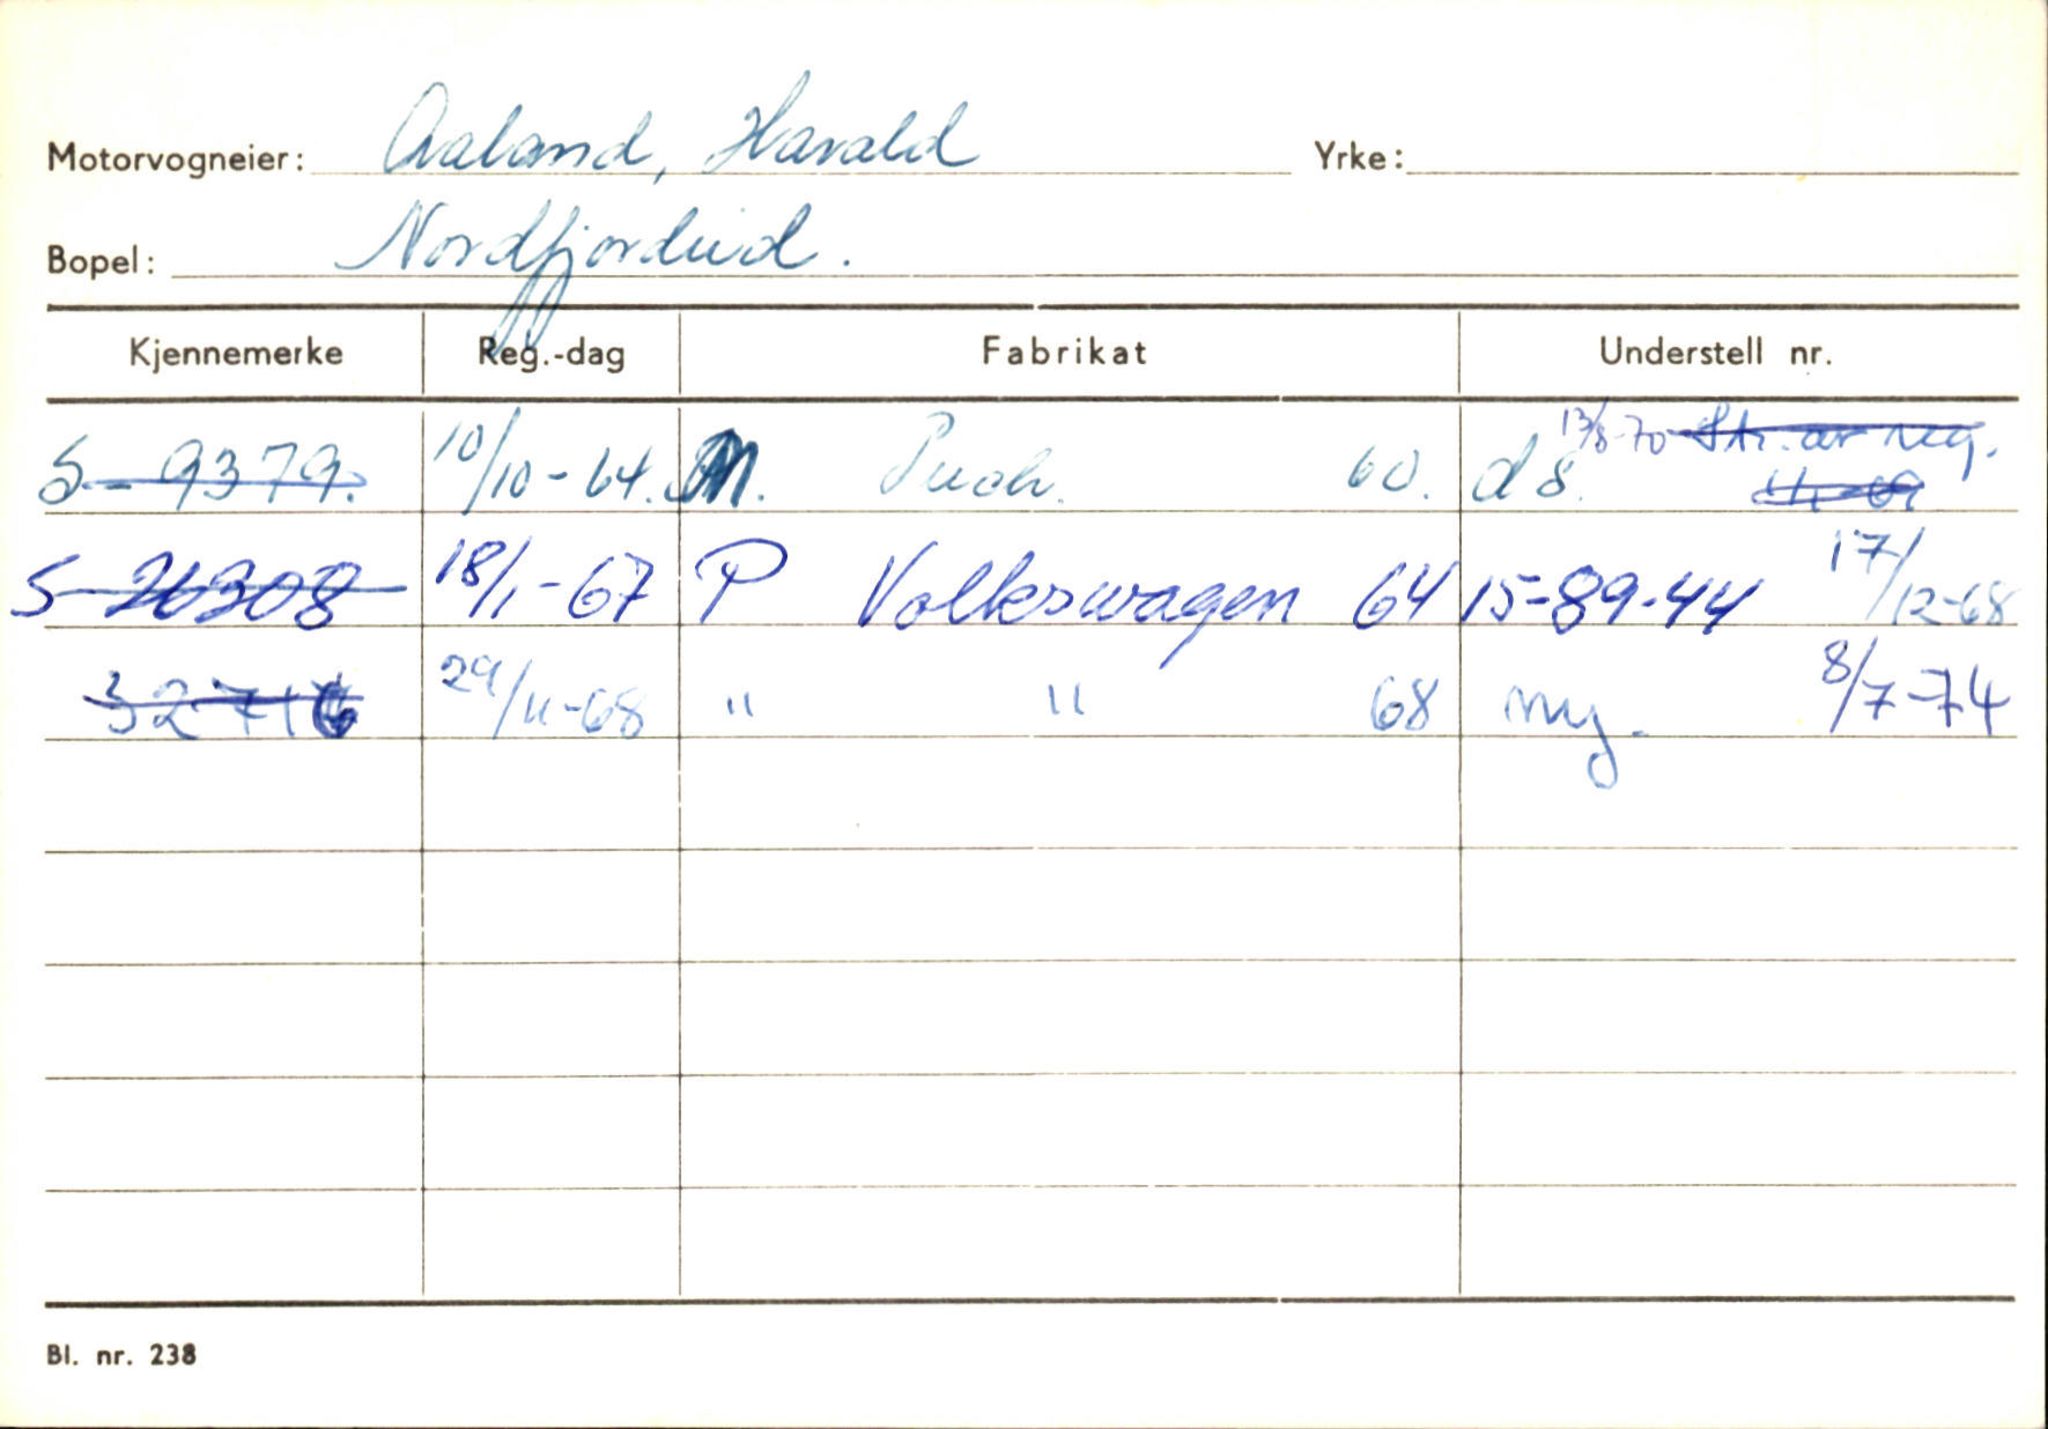 Motorvogneier: Aaland, Harald Yrke:
Bopel: Nordfjordeid.
Kjennemerke Reg.-dag Fabrikat Understell nr.
S-9379. 10/10-64. M. Puch. 60. d 8. 13/8-70 Str. av reg.
S-20308 18/1-67 P Volkswagen 64 15-89-44 17/12-68
32716 29/11-68 " " 68 ny. 8/7-74
Bl. nr. 238